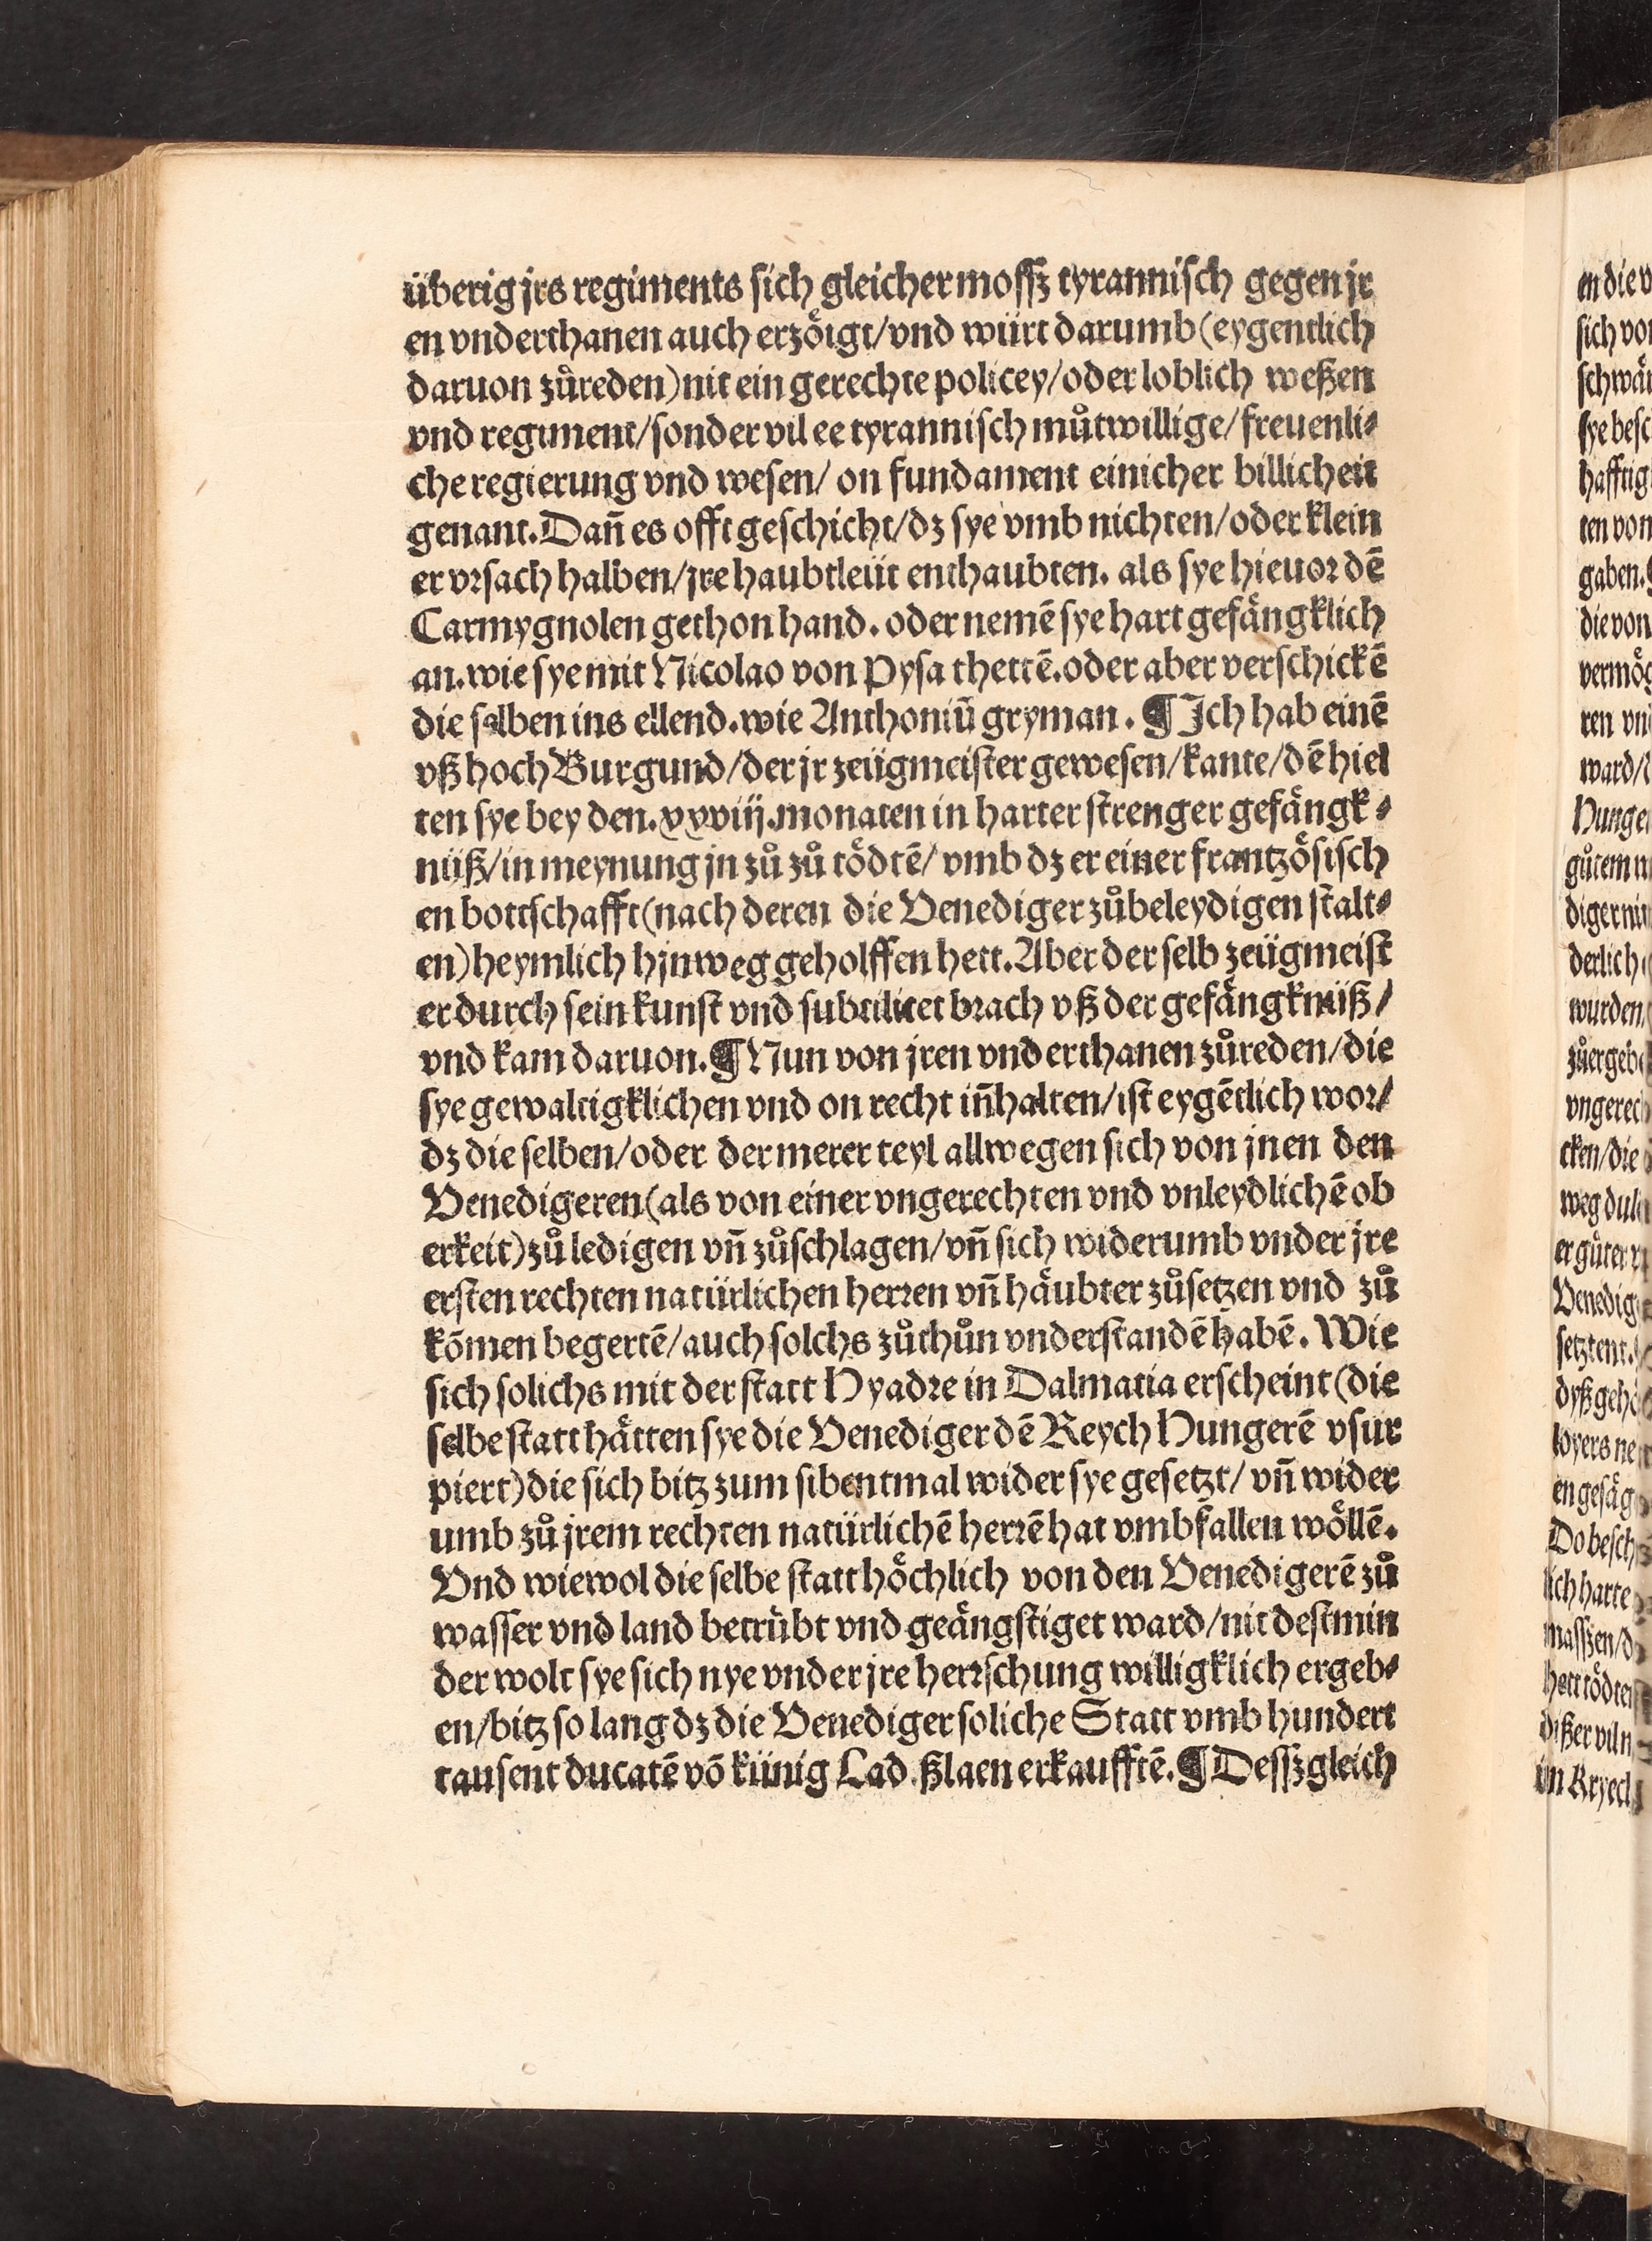 überig jrs regiments sich gleicher mosſz tyrannisch gegen jr
en vnderthanen auch erzöigt/vnd würt darumb (eygentlich
daruon zůreden) nit ein gerechte policey/oder loblich weßen
vnd regiment/sonder vil ee tyrannisch můtwillige/freuenli⸗
che regierung vnd wesen/ on fundament einicher billicheit
genant. Dañ es offt geschicht/dz sye vmb nichten/oder klein
er vrsach halben/jre haubtleüt enthaubten. als sye hieuor dē
Carmygnolen gethon hand. oder nemē sye hart gefängklich
an. wie sye mit Nicolao von Pysa thettē. oder aber verschickē
die selben ins ellend. wie Anthoniū gryman. ¶ Ich hab einē
vß hoch Burgund/der jr zeügmeister gewesen/kante/dē hiel
ten sye bey den. xxviij. monaten in harter strenger gefängk⸗
nüß/in meynung jn zů zů tödtē/ vmb dz er einer frantzösisch
en bottschafft (nach deren die Venediger zůbeleydigen stalt⸗
en) heymlich hjnweg geholffen hett. Aber der selb zeügmeist
er durch sein kunst vnd subtilitet brach vß der gefängknüß/
vnd kam daruon. ¶ Nun von jren vnderthanen zůreden/die
sye gewaltigklichen vnd on recht iñhalten/ist eygētlich wor/
dz die selben/oder der merer teyl allwegen sich von jnen den
Venedigeren (als von einer vngerechten vnd vnleydlichē ob
erkeit) zů ledigen vñ zůschlagen/vñ sich widerumb vnder jre
ersten rechten natürlichen herren vñ häubter zůsetzen vnd zů
kōmen begertē/auch solchs zůthůn vnderstandē habē. Wie
sich solichs mit der statt Hyadre in Dalmatia erscheint (die
selbe statt hätten sye die Venediger dē Reych Hungerē vsur
piert) die sich bitz zum sibentmal wider sye gesetzt/ vñ wider
umb zů jrem rechten natürlichē herrē hat vmbfallen wöllē.
Vnd wiewol die selbe statt höchlich von den Venedigerē zů
wasser vnd land betrübt vnd geängstiget ward/nit destmin
der wolt sye sich nye vnder jre herrschung willigklich ergeb⸗
en/bitz so lang dz die Venediger soliche Statt vmb hundert
tausent ducatē vō künig Lad ßlaen erkaufftē. ¶ Desſz gleich